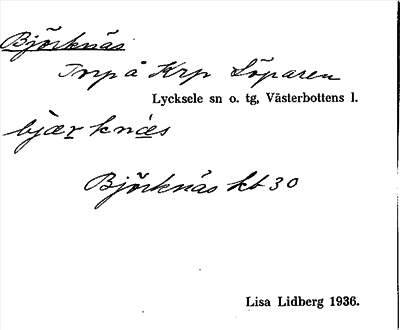 Björknäs
Torp å Krp Löparen
Lycksele sn o. tg, Västerbottens l.
bjær knæs
Björknäs kb 30
Lisa Lidberg 1936.